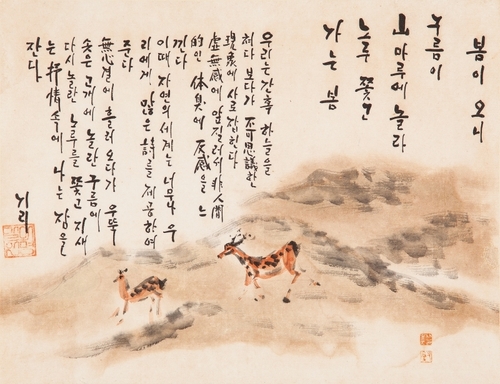 봄이 오니
구름이
山마루에 놀라
노루 쫓고
가는 봄
우리는 간혹 하늘을
쳐다 보다가 不可思議한
사로잡힌다
虛無感에 앞질러서 非人間
的인 体臭에 灰感을 느
낀다
이때 자연의 세계는 너무나 우
리에게 많은 詩를 제공하여
준다
無心결에 흘러 오다가 우뚝
솟은 고개에 놀란 구름에
다시 놀란 노루를 쫓고 지새
는 抒情 속에 나는 잠을
잔다